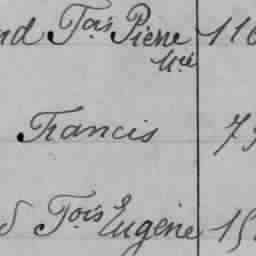 nd Fois Pierre 116
Ué
Francis 75
d Fois Eugène 15